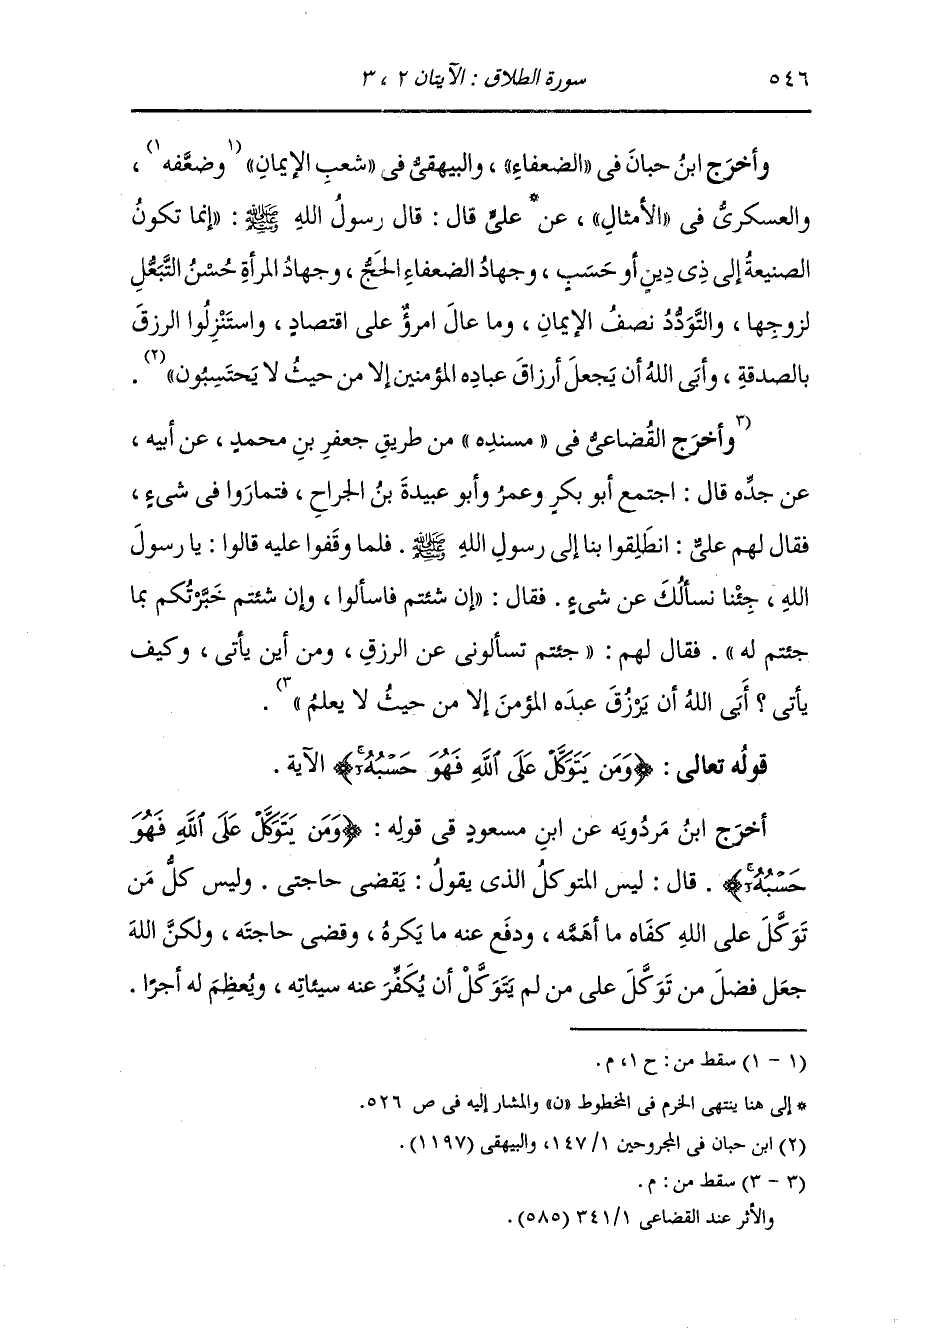 ٥٤٦ سورة الطلاق : الآيتان ٢ ، ٣
وأخرَج ابنُ حبانَ فى «الضعفاءِ» ، والبيهقىُّ فى «شعبِ الإيمانِ» (١وضعَّفه١) ،
والعسكرىُّ فى «الأمثالِ» ، عن* علىٍّ قال : قال رسولُ اللهِ ﷺ : «إنما تكونُ
الصنيعةُ إلى ذِى دِينٍ أو حَسَبٍ ، وجهادُ الضعفاءِ الحَجُّ ، وجهادُ المرأةِ حُسْنُ التَّبَعُّلِ
لزوجِها ، والتَّوَدُّدُ نصفُ الإيمانِ ، وما عالَ امرؤٌ على اقتصادٍ ، واستَنْزِلُوا الرزقَ
بالصدقةِ ، وأبَى اللهُ أن يَجعلَ أرزاقَ عبادِه المؤمنين إلا من حيثُ لا يَحتَسِبُون» (٢) .
(٣وأخرَج القُضاعىُّ فى « مسندِه » من طريقِ جعفرِ بنِ محمدٍ ، عن أبيه ،
عن جدِّه قال : اجتمع أبو بكرٍ وعمرُ وأبو عبيدةَ بنُ الجراحِ ، فتمارَوا فى شىءٍ ،
فقال لهم علىٌّ : انطَلِقوا بنا إلى رسولِ اللهِ ﷺ . فلما وقَفوا عليه قالوا : يا رسولَ
اللهِ ، جِئْنا نسألُكَ عن شىءٍ . فقال : «إن شئتم فاسألوا ، وإن شئتم خَبَّرْتُكم بما
جئتم له» . فقال لهم : « جئتم تسألونى عن الرزقِ ، ومن أين يأتى ، وكيف
يأتى ؟ أَبَى اللهُ أن يَرْزُقَ عبدَه المؤمنَ إلا من حيثُ لا يعلمُ »٣) .
قولُه تعالى : ﴿وَمَن يَتَوَكَّلْ عَلَى ٱللَّهِ فَهُوَ حَسْبُهُۥٓ﴾ الآية .
أخرَج ابنُ مَردُويَه عن ابنِ مسعودٍ فى قولِه : ﴿وَمَن يَتَوَكَّلْ عَلَى ٱللَّهِ فَهُوَ
حَسْبُهُۥٓ﴾ . قال : ليس المتوكلُ الذى يقولُ : يَقضى حاجتى . وليس كلُّ مَن
تَوَكَّلَ على اللهِ كفَاه ما أهَمَّه ، ودفَع عنه ما يَكرهُ ، وقضى حاجتَه ، ولكنَّ اللهَ
جعَل فضلَ من تَوَكَّلَ على من لم يَتَوَكَّلْ أن يُكَفِّرَ عنه سيئاتِه ، ويُعظِمَ له أجرًا .
(١ - ١) سقط من : ح ١، م .
* إلى هنا ينتهى الخرم فى المخطوط «ن» والمشار إليه فى ص ٥٢٦.
(٢) ابن حبان فى المجروحين ١/ ١٤٧، والبيهقى (١١٩٧) .
(٣ - ٣) سقط من : م .
والأثر عند القضاعى ١/ ٣٤١ (٥٨٥) .